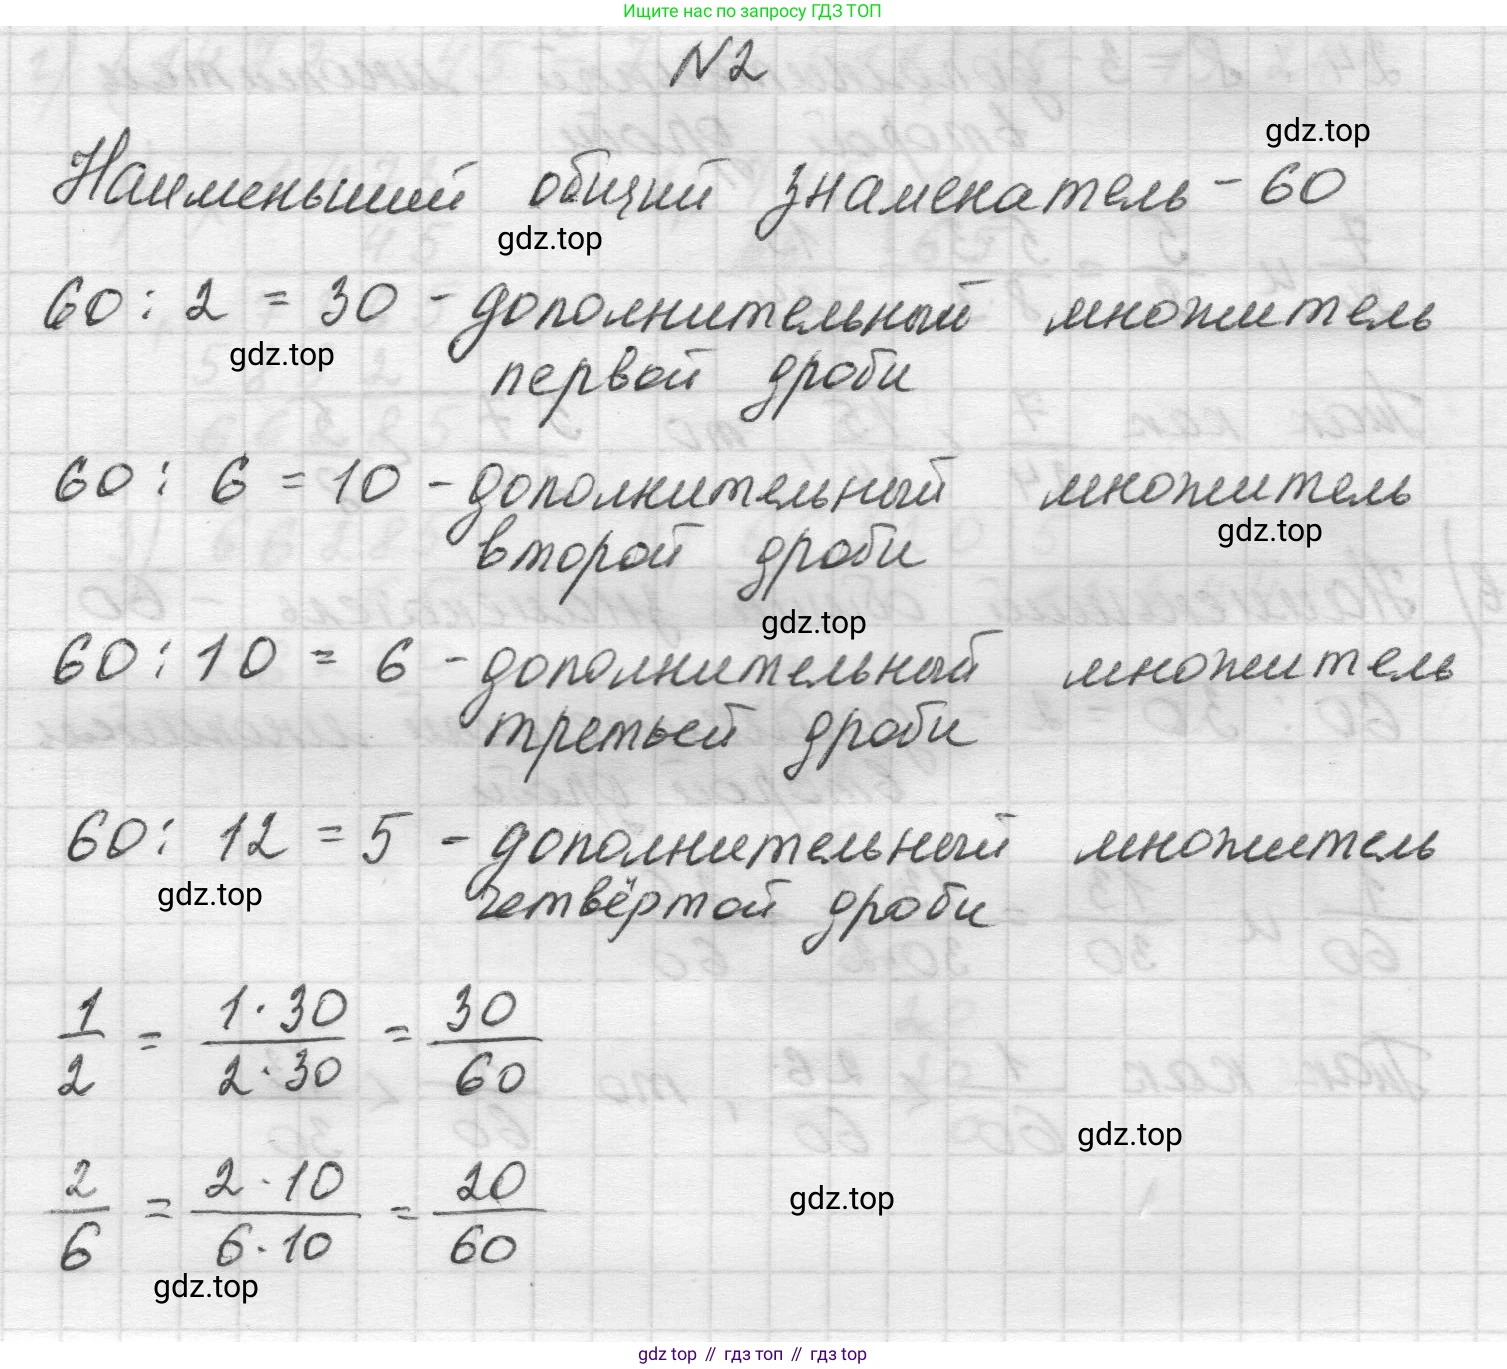 Ищите нас по запросу ГДЗ ТОП
N2
gdz.top
Наименьший общий знаменатель - 60
gdz.top
60 : 2 = 30 - дополнительный множитель
gdz.top
первой дроби
60 : 6 = 10 - дополнительный множитель
gdz.top
второй дроби
gdz.top
60 : 10 = 6 - дополнительный множитель
третьей дроби
60 : 12 = 5 - дополнительный множитель
gdz.top
четвёртой дроби
1/2 = 1·30/2·30 = 30/60
gdz.top
2/6 = 2·10/6·10 = 20/60
gdz.top
gdz.top
gdz top // гдз топ // гдз top